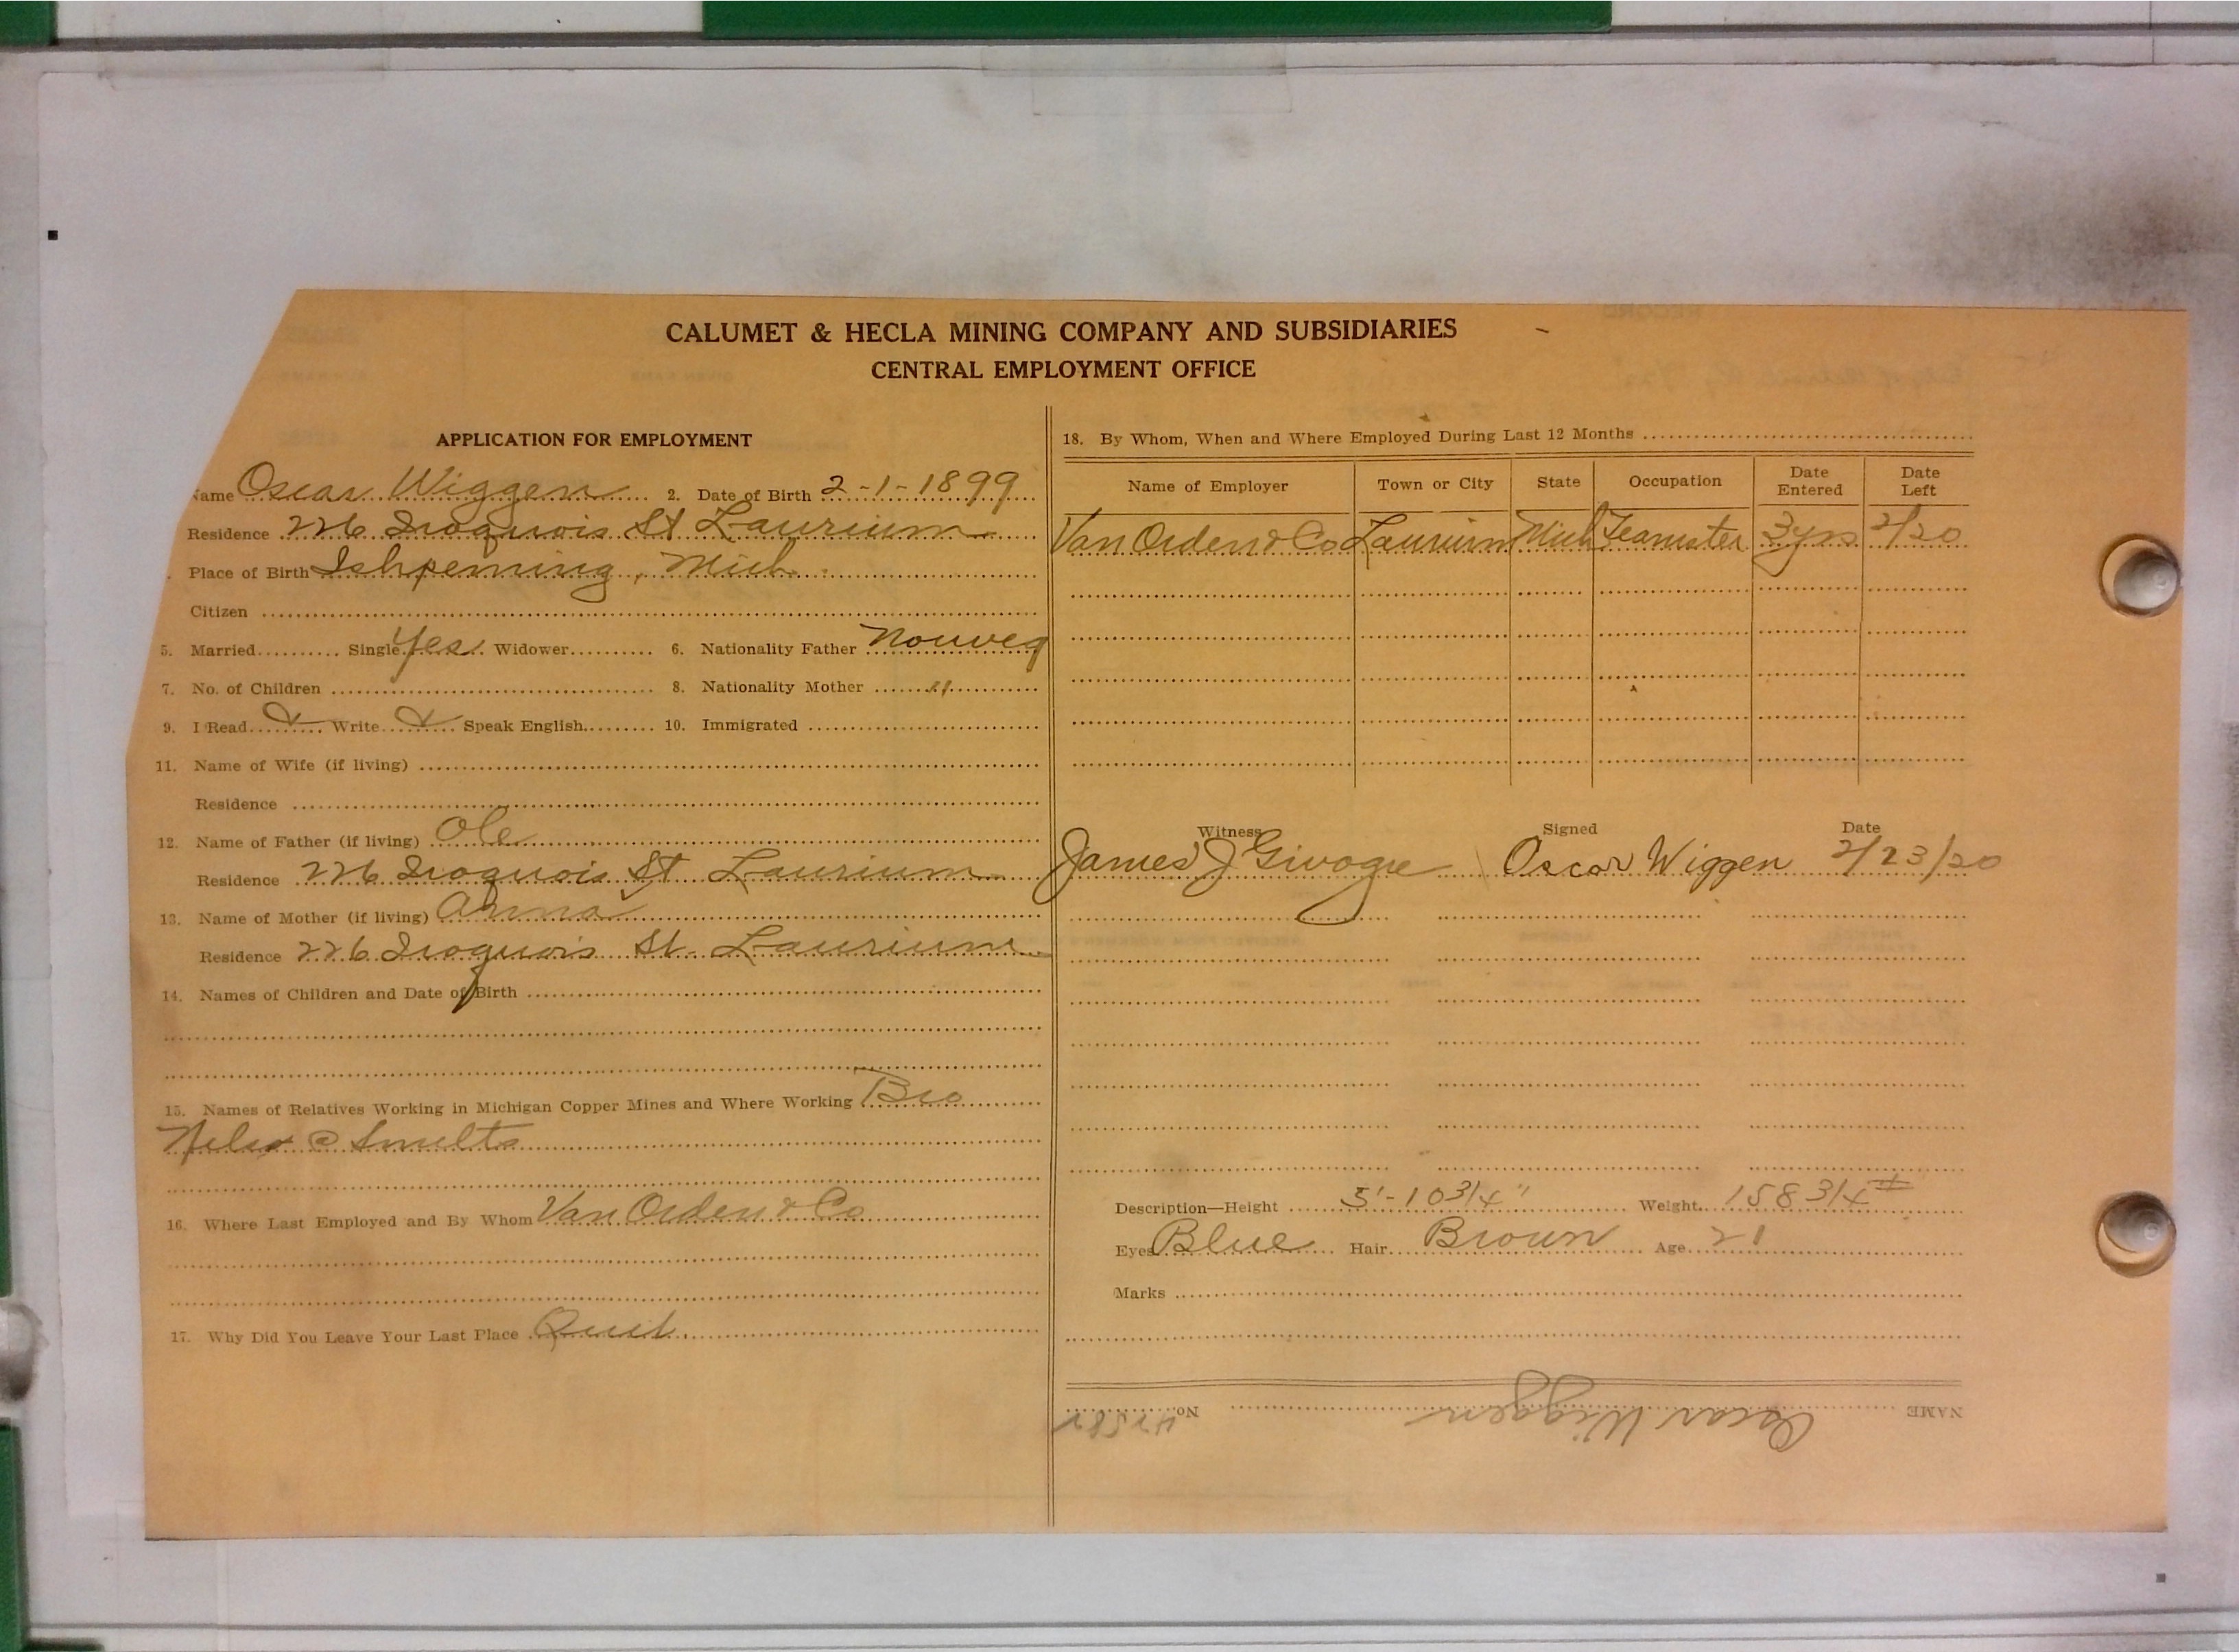 CALUMET & HECLA MINING COMPANY AND SUBSIDIARIES
CENTRAL EMPLOYMENT OFFICE
APPLICATION FOR EMPLOYMENT
Name Oscar Wiggen 2. Date of Birth 2-1-1899
Residence 226 Iroquois St Laurium
Place of Birth Ishpeming, Mich
Citizen
5. Married Single Yes Widower 6. Nationality Father Norweg
7. No. of Children 8. Nationality Mother "
9. I Read Write Speak English 10. Immigrated
11. Name of Wife (if living)
Residence
12. Name of Father (if living) Ole
Residence 226 Iroquois St Laurium
13. Name of Mother (if living) Anna
Residence 226 Iroquois St. Laurium
14. Names of Children and Date of Birth
15. Names of Relatives Working in Michigan Copper Mines and Where Working Bro
@ Smelts
16. Where Last Employed and By Whom Van Orden & Co
17. Why Did You Leave Your Last Place Quit
18. By Whom, When and Where Employed During Last 12 Months
Name of Employer Town or City State Occupation Date Entered Date Left
Van Orden & Co Laurium Mich Teamster 3 yrs 2/20
Witness Signed Date
James J Oscar Wiggen 2/23/20
Description—Height 5'-10 3/4" Weight 158 3/4 #
Eyes Blue Hair Brown Age 21
Marks
NAME Oscar Wiggen No.